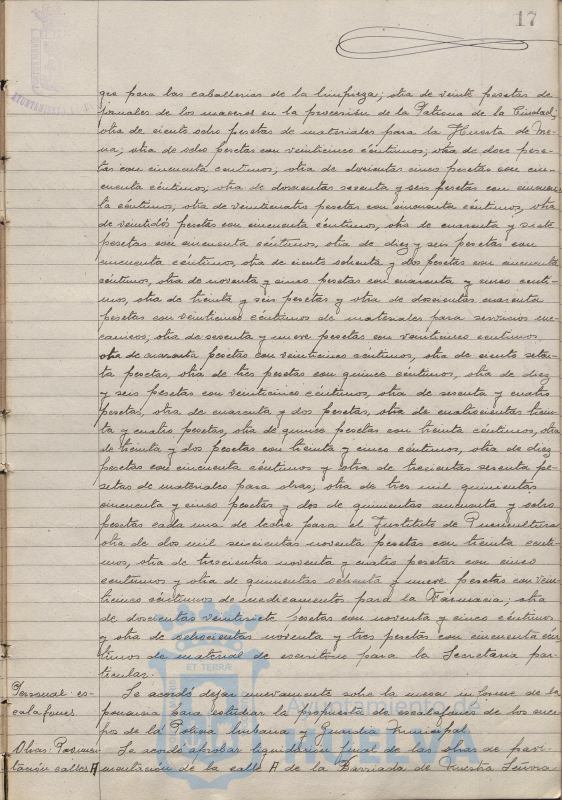 17
gre para las caballerias de la limpieza; otra de veinte pesetas de
jornales de los maceros en la procesión de la Patrona de la Ciudad;
otra de ciento ocho pesetas de materiales para la Huerta de Me-
na; otra de ocho pesetas con veinticinco céntimos; otra de doce pese-
tas con cincuenta centimos; otra de doscientas cinco pesetas con cin-
cuenta céntimos; otra de doscientas sesenta y seis pesetas con cincuen-
ta céntimos, otra de veinticuatro pesetas con cincuenta céntimos, otra
de veintidós pesetas con cincuenta céntimos, otra de cuarenta y siete
pesetas con cincuenta céntimos, otra de diez y seis pesetas con
cincuenta céntimos, otra de ciento ochenta y dos pesetas con cincuenta
céntimos, otra de noventa y cinco pesetas con cuarenta y cinco cénti-
mos, otra de treinta y seis pesetas y otra de doscientas cuarenta
pesetas con veinticinco céntimos de materiales para servicios me-
canicos; otra de sesenta y nueve pesetas con veinticinco centimos
otra de cuarenta pesetas con veinticinco céntimos, otra de ciento seten-
ta pesetas, otra de tres pesetas con quince céntimos, otra de diez
y seis pesetas con veinticinco céntimos, otra de sesenta y cuatro
pesetas, otra de cuarenta y dos pesetas, otra de cuatrocientas trein-
ta y cuatro pesetas, otra de quince pesetas con treinta céntimos, otra
de treinta y dos pesetas con treinta y cinco céntimos, otra de diez
pesetas con cincuenta céntimos y otra de trescientas sesenta pe-
setas de materiales para obras; otra de tres mil quinientas
cincuenta y cinco pesetas y dos de quinientas cincuenta y ocho
pesetas cada una de leche para el Instituto de Puericultura
otra de dos mil seiscientas noventa pesetas con treinta cénti-
mos, otra de trescientas noventa y cuatro pesetas con cinco
centimos y otra de quinientas ochenta y nueve pesetas con vein-
ticinco céntimos de medicamentos para la Farmacia; otra
de doscientas veintisiete pesetas con noventa y cinco céntimos
y otra de ochocientas noventa y tres pesetas con cincuenta cén-
timos de material de escritorio para la Secretaria par-
ticular.
Personal: es-
calafones
Se acordó dejar nuevamente sobre la mesa informe de la
ponencia para estudiar la propuesta de escalafones de los cuer-
pos de la Policia Urbana y Guardia Municipal.
Obras: Pavimen-
tación calle A
Se acordó aprobar liquidación final de las obras de pavi-
mentación de la calle A de la Barriada de Nuestra Señora
ET TERRÆ
Ayuntamiento de
HUELVA